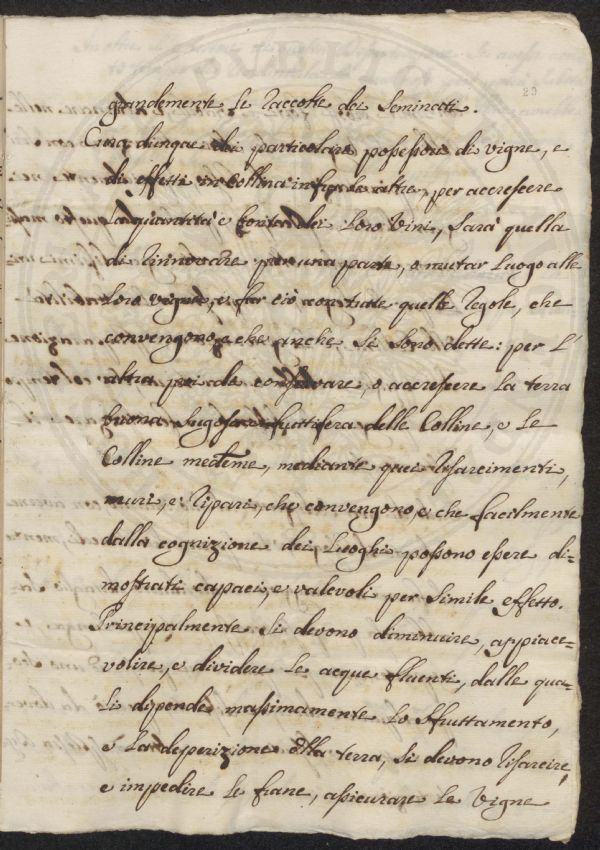 29
grandemente le raccolte dei Seminati.
Cura dunque dei particolare possessore di vigne, e
di effetti in Collina in fra le altre, per accrescere
la quantità e bontà dei loro Vini, Sarà quella
di rinnovare per una parte, o mutar luogo alle
loro vigne, e far ciò con quelle regole, che
convengono, e che anche si sono dette: per l'
altra poi di conservare, o accrescere la terra
buona sugosa e fruttifera delle Colline, e le
Colline medeme, mediante quei risarcimenti,
muri, e ripari, che convengono, e che facilmente
dalla cognizione dei luoghi possono essere di=
mostrati capaci, e valevoli per simile effetto.
Principalmente si devono diminuire, appiace=
volire, e dividere le acque fluenti, dalle qua=
li dipende massimamente lo sfruttamento,
e la deperizione della terra, si devono risarcire,
e impedire le frane, assicurare le vigne